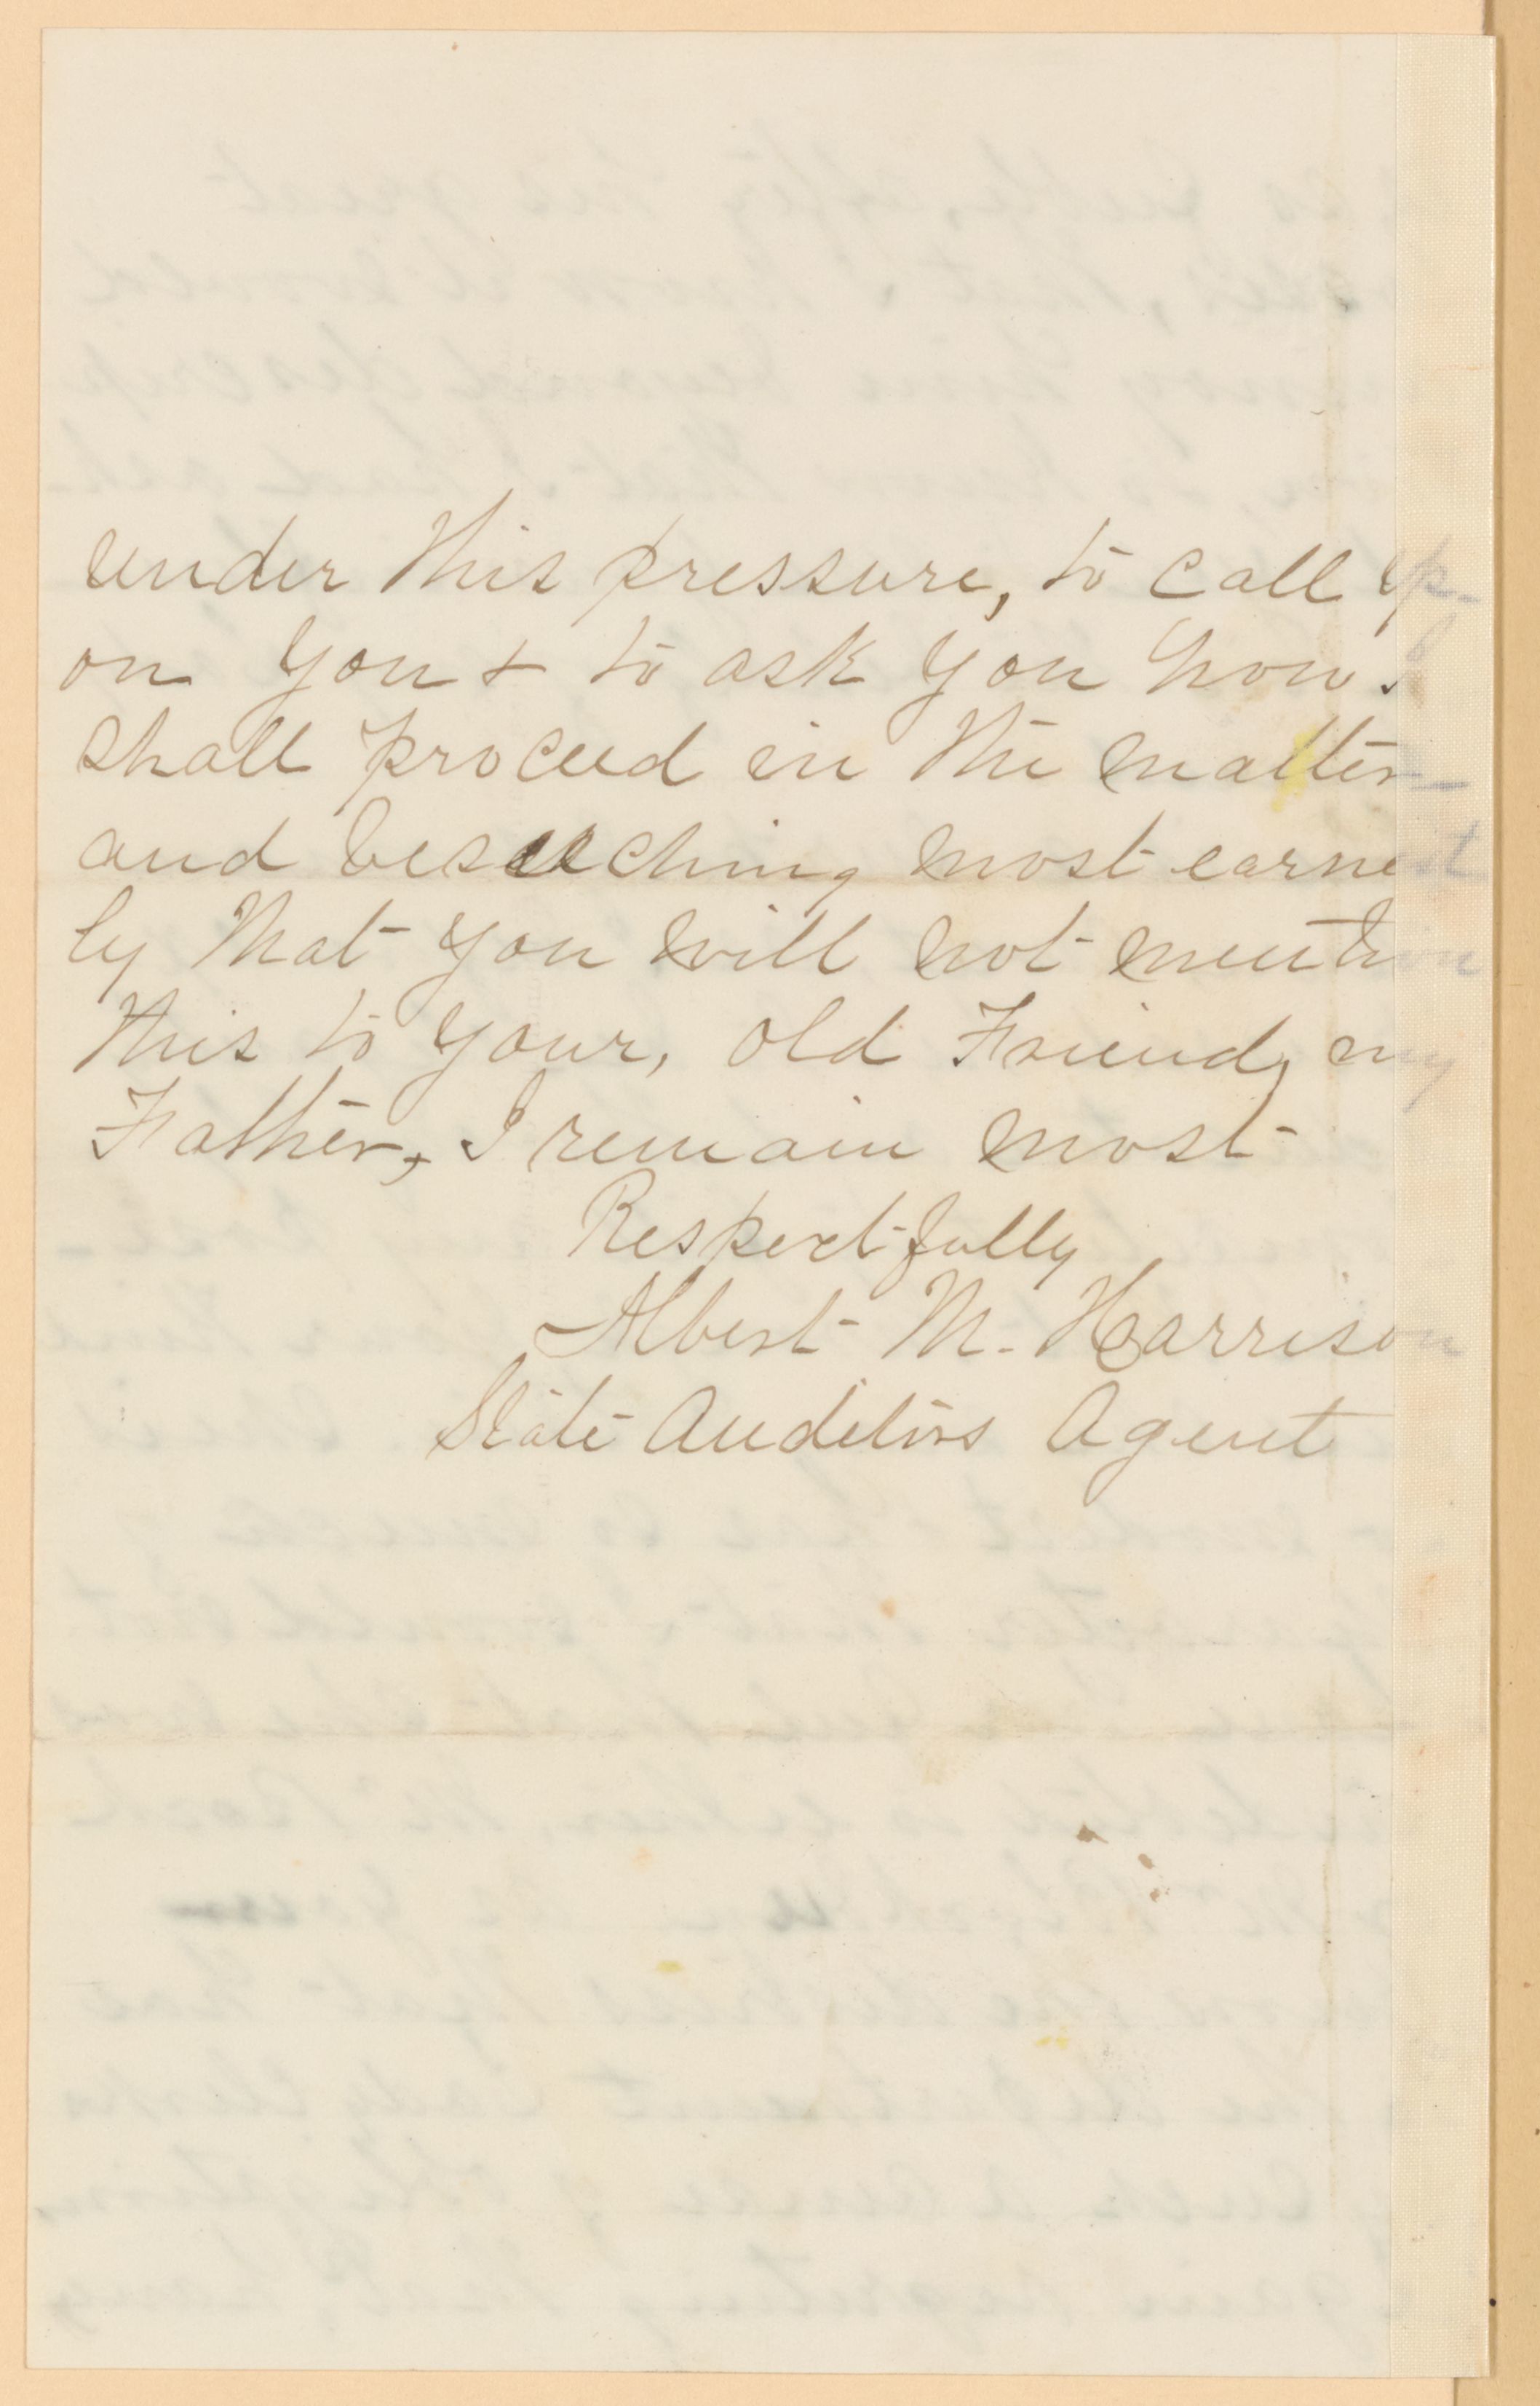 under this pressure, to call up-
on you & to ask you how I
shall proceed in the matter—
and beseeching most earnest
ly that you will not mention
this to your, old Friend, my
Father, I remain most
Respectfully
Albert M. Harrison
State Auditors Agent